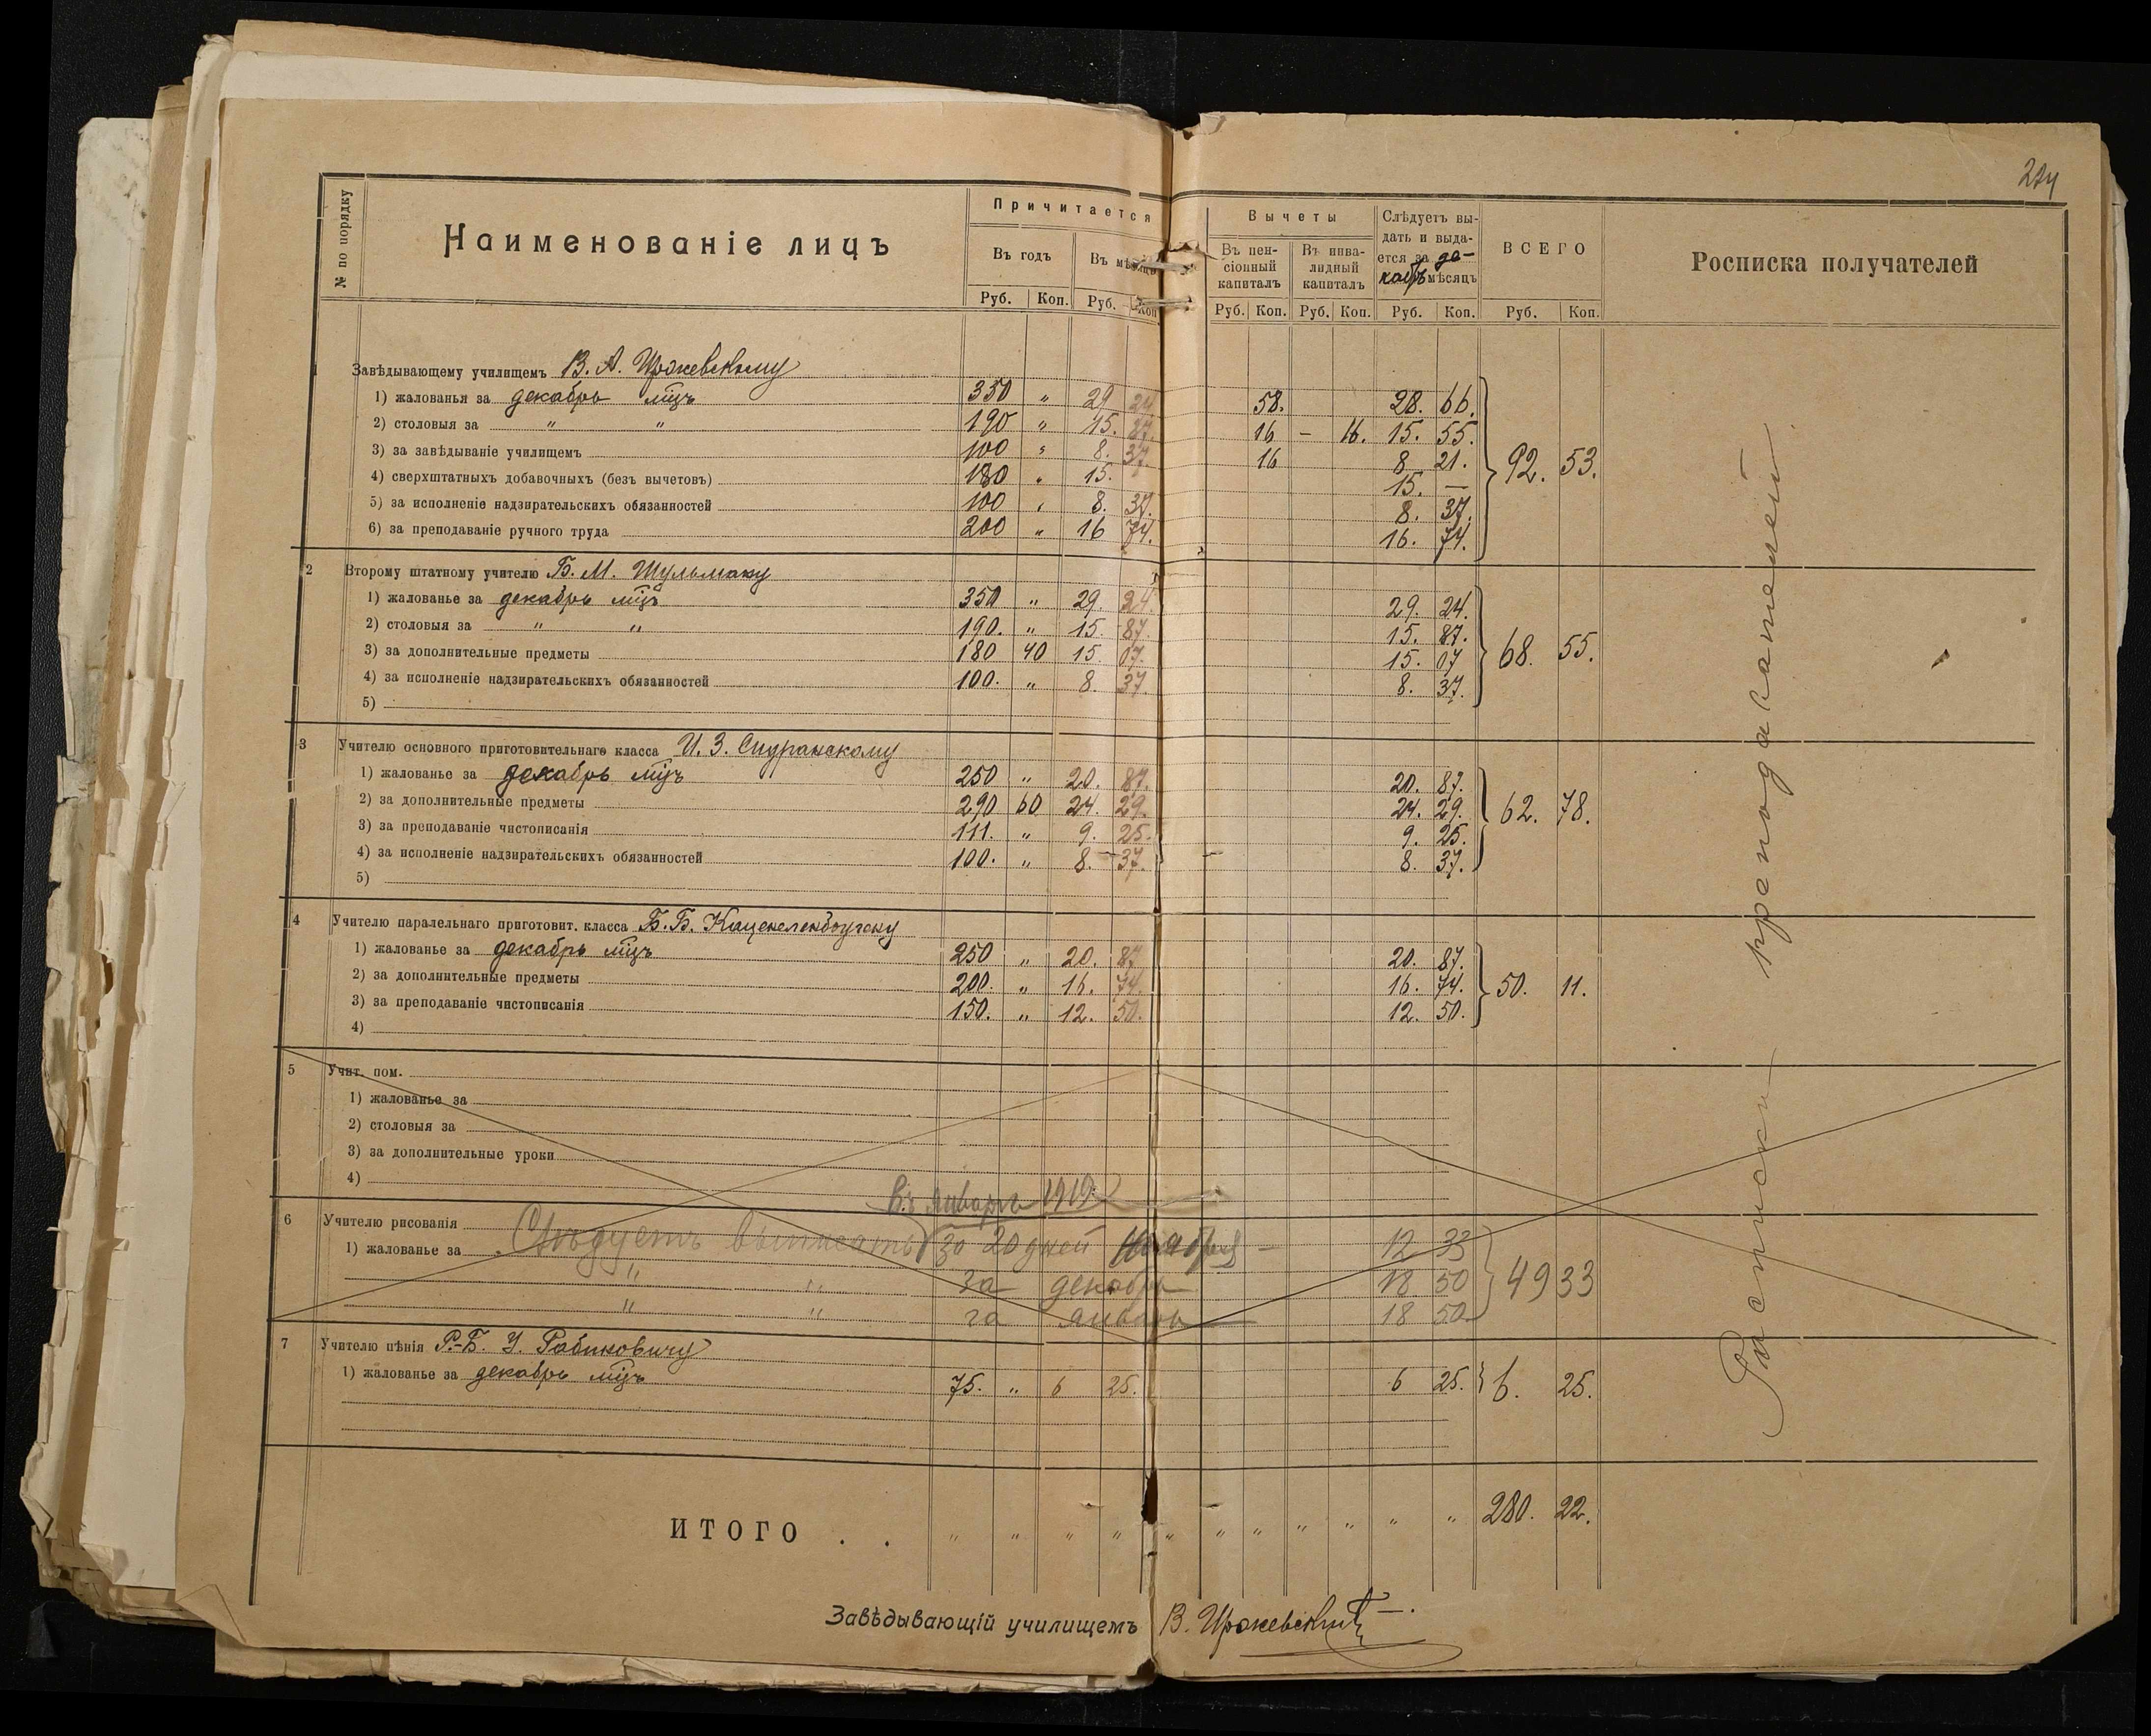 274
№ по порядку
Наименованіе лицъ
Причитается
Въ годъ
Въ мѣсяцъ
Руб. Коп. Руб. Коп.
Вычеты
Въ пен-
сіонный
капиталъ
Въ инва-
лидный
капиталъ
Слѣдуетъ вы-
дать и выда-
ется за де-
кабрь мѣсяцъ
ВСЕГО
Росписка получателей
Руб. Коп. Руб. Коп. Руб. Коп. Руб. Коп.
1 Завѣдывающему училищемъ В. А. Иржевскому
1) жалованья за декабрь мцъ 350 " 29 24 58. 28. 66.
2) столовыя за " " 190 " 15. 87. 16 - 16. 15. 55.
3) за завѣдываніе училищемъ 100 " 8. 37. 16 8 21.
4) сверхштатныхъ добавочныхъ (безъ вычетовъ) 180 " 15. 15. —
5) за исполненіе надзирательскихъ обязанностей 100 " 8. 37. 8. 37.
6) за преподаваніе ручного труда 200 " 16 74. 16. 74.
92. 53.
2 Второму штатному учителю Б. М. Шульману
1) жалованье за декабрь мцъ 350 " 29. 24. 29. 24.
2) столовыя за " " 190. " 15. 87. 15. 87.
3) за дополнительные предметы 180 40 15. 07. 15. 07
4) за исполненіе надзирательскихъ обязанностей 100. " 8. 37 8. 37.
5)
68. 55.
3 Учителю основного приготовительнаго класса И. З. Сидранскому
1) жалованье за декабрь мцъ 250 " 20. 87. 20. 87.
2) за дополнительные предметы 290 60 24. 29. 24. 29.
3) за преподаваніе чистописанія 111. " 9. 25. 9. 25.
4) за исполненіе надзирательскихъ обязанностей 100. " 8. 37. 8. 37.
5)
62. 78.
4 Учителю паралельнаго приготовит. класса Б. Б. Каценеленбогену
1) жалованье за декабрь мцъ 250 " 20. 87 20. 87.
2) за дополнительные предметы 200. " 16. 74. 16. 74.
3) за преподаваніе чистописанія 150. " 12. 50. 12. 50.
4)
50. 11.
5 Учит. пом.
1) жалованье за
2) столовыя за
3) за дополнительные уроки
4)
Въ январѣ 1919
6 Учителю рисованія
1) жалованье за Слѣдуетъ выписать за 20 дней ноября — 12 33
" " за декабрь 18 50
" " за январь 18 50
49 33
7 Учителю пѣнія Р.-Б. У. Рабиновичу
1) жалованье за декабрь мцъ 75. " 6 25. 6 25. 6. 25.
ИТОГО . . " " " " " " " " " " " 280. 22.
Росписки преподавателей
Завѣдывающій училищемъ В. Иржевскій